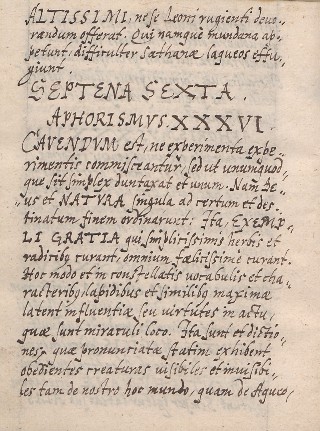 ALTISSIMI, nese Leoni rugienti devo-
randum offerat. Qui namque mundana ap-
petunt, difficulter Sathanæ laqueos effu-
giunt.
SEPTENA SEXTA.
APHORISMVS XXXVI.
CAVENDVM est, ne experimenta expe-
rimentis commisceantur, sed ut unumquod-
que sit simplex duntaxat et unum. Nam De-
us et NATVRA singula ad certum et des-
tinatum finem ordinarunt: Ita, EXEMP-
LI GRATIA qui simplicissimis herbis et
radicibus curant, omnium fœlicissime curant.
Hoc modo et in constellatis vocabulis et cha-
racteribus, lapidibus et similibus maximæ
latent influentiæ seu virtutes in actu,
quæ sunt miraculi loco. Ita sunt et dictio-
nes, quæ pronunciatæ statim exhibent
obedientes creaturas visibiles et invisibi-
les tam de nostro hoc mundo, quam de Aqueo,